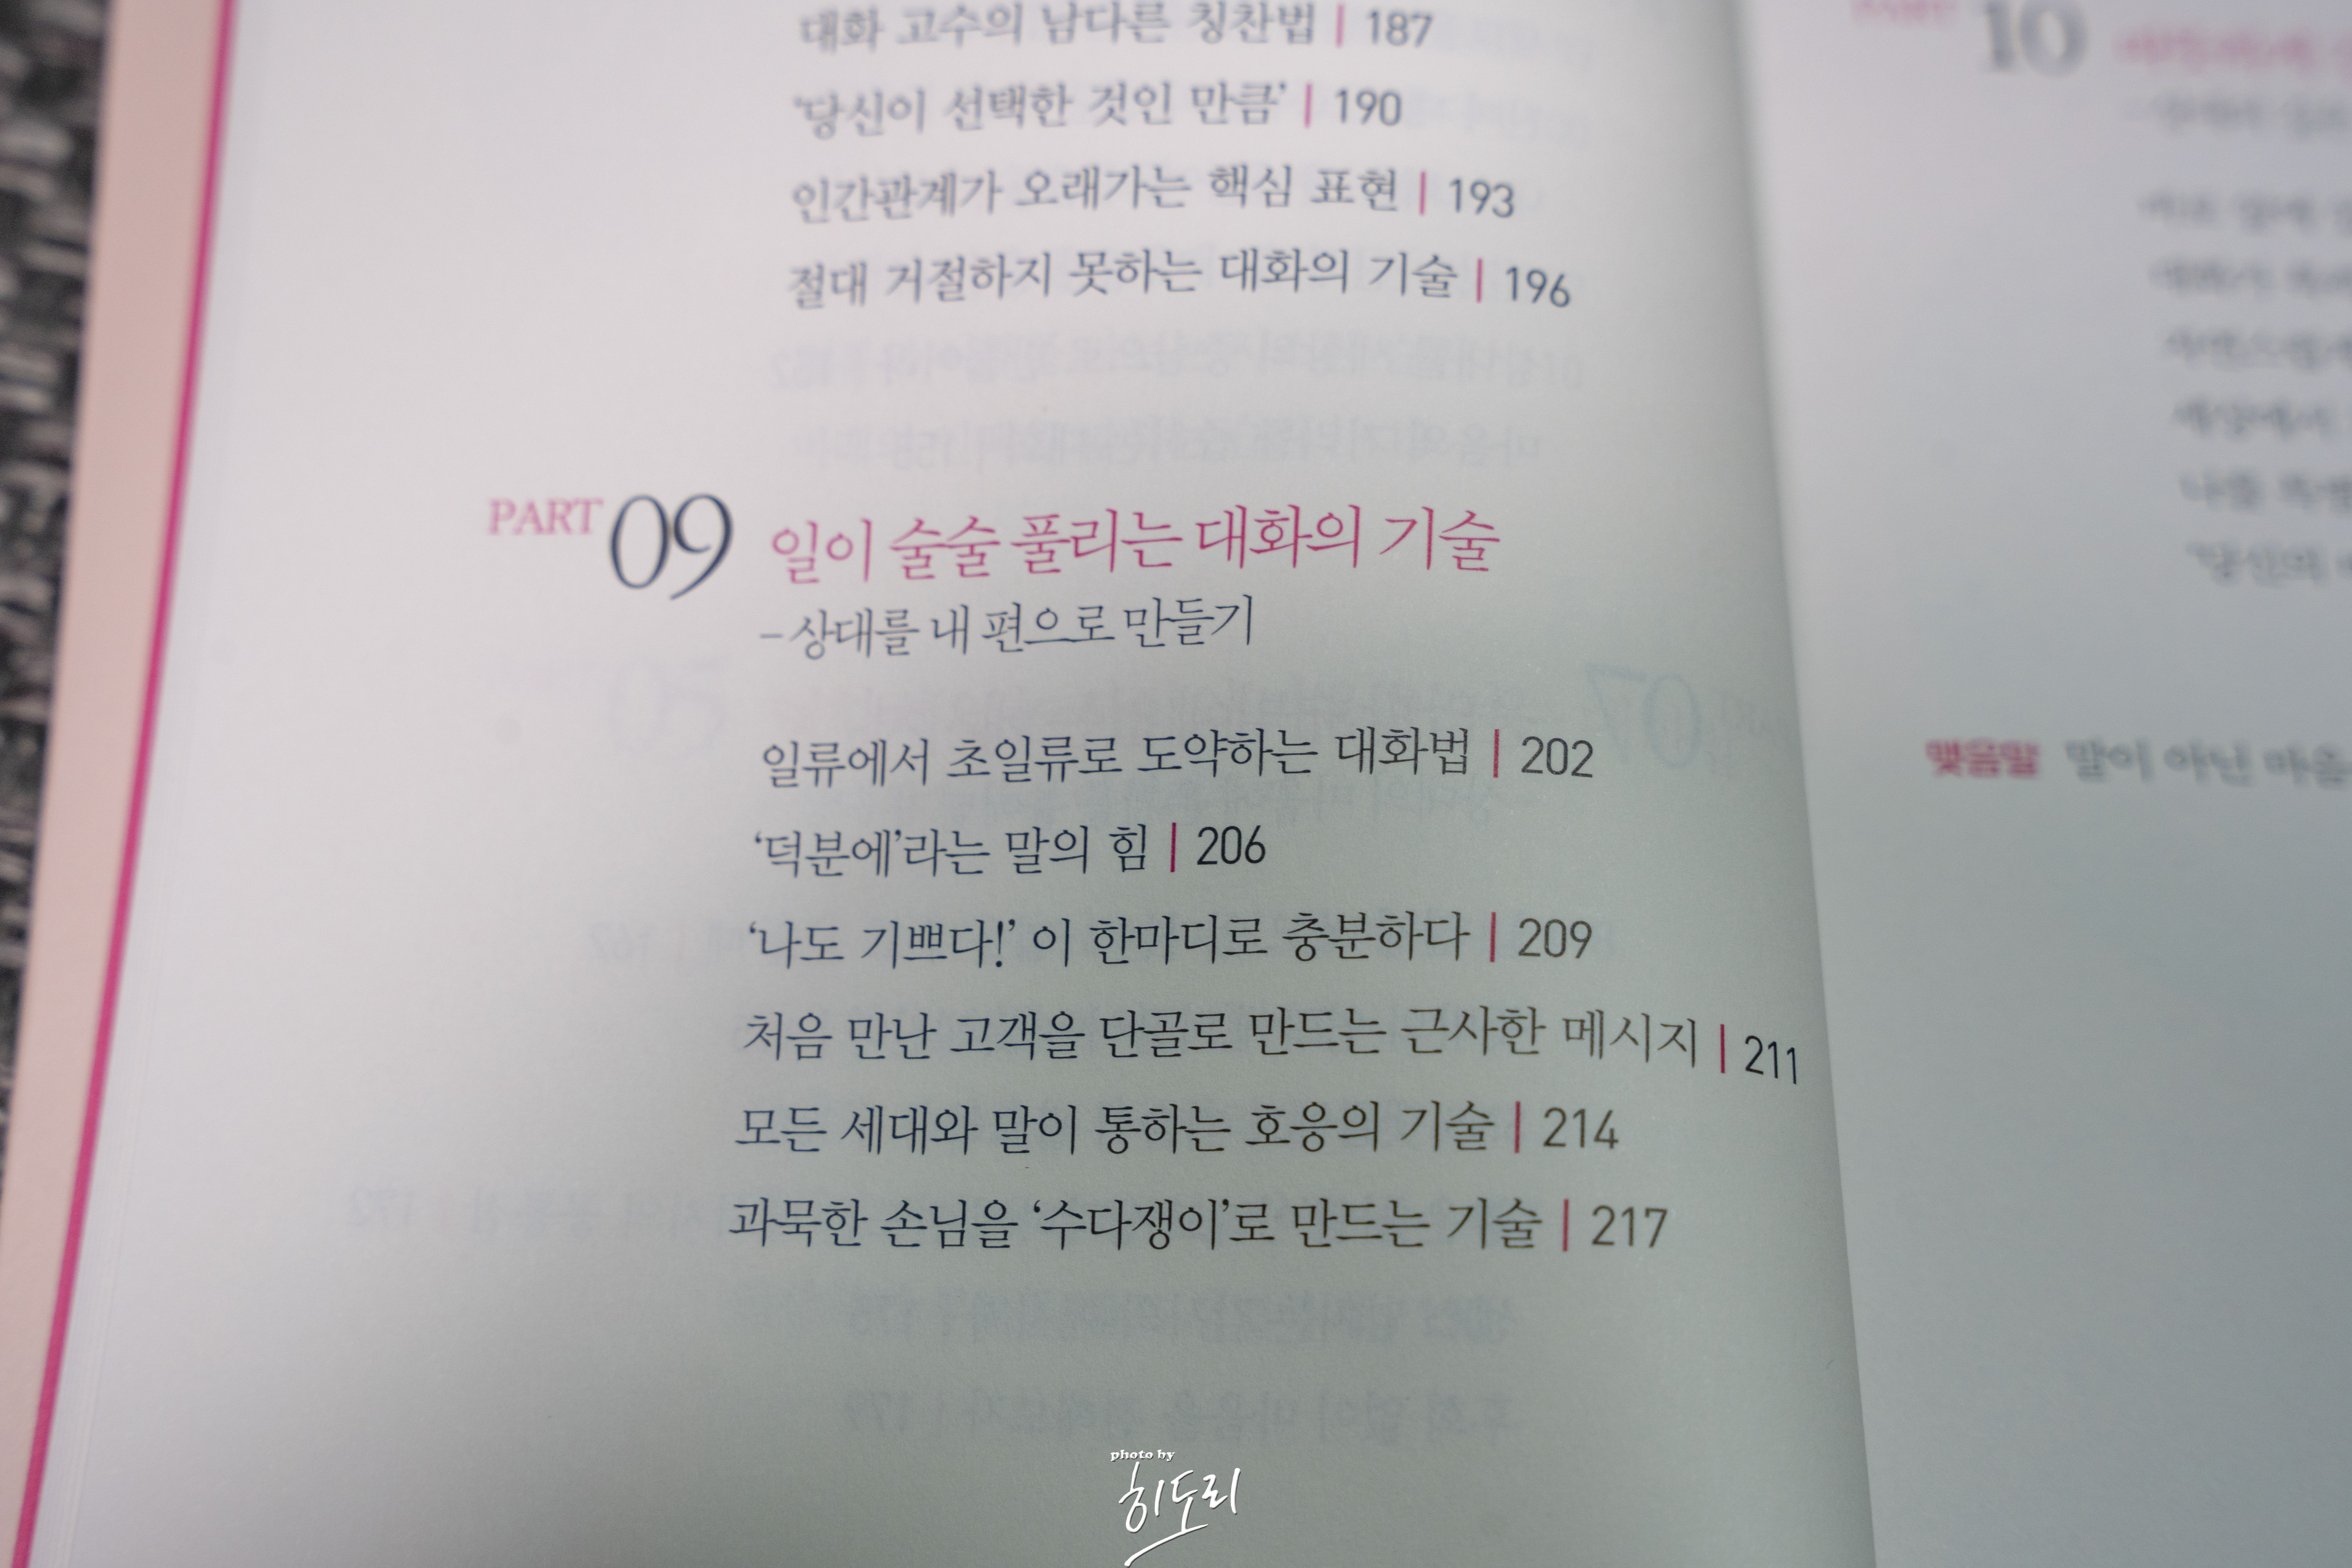 대화 고수의 남다른 칭찬법 | 187
‘당신이 선택한 것인 만큼’ | 190
인간관계가 오래가는 핵심 표현 | 193
절대 거절하지 못하는 대화의 기술 | 196
PART 09 일이 술술 풀리는 대화의 기술
–상대를 내 편으로 만들기
일류에서 초일류로 도약하는 대화법 | 202
‘덕분에’라는 말의 힘 | 206
‘나도 기쁘다!’ 이 한마디로 충분하다 | 209
처음 만난 고객을 단골로 만드는 근사한 메시지 | 211
모든 세대와 말이 통하는 호응의 기술 | 214
과묵한 손님을 ‘수다쟁이’로 만드는 기술 | 217
PART 10
나를
당신의
맺음말 말이 아닌 마음
photo by
히도리